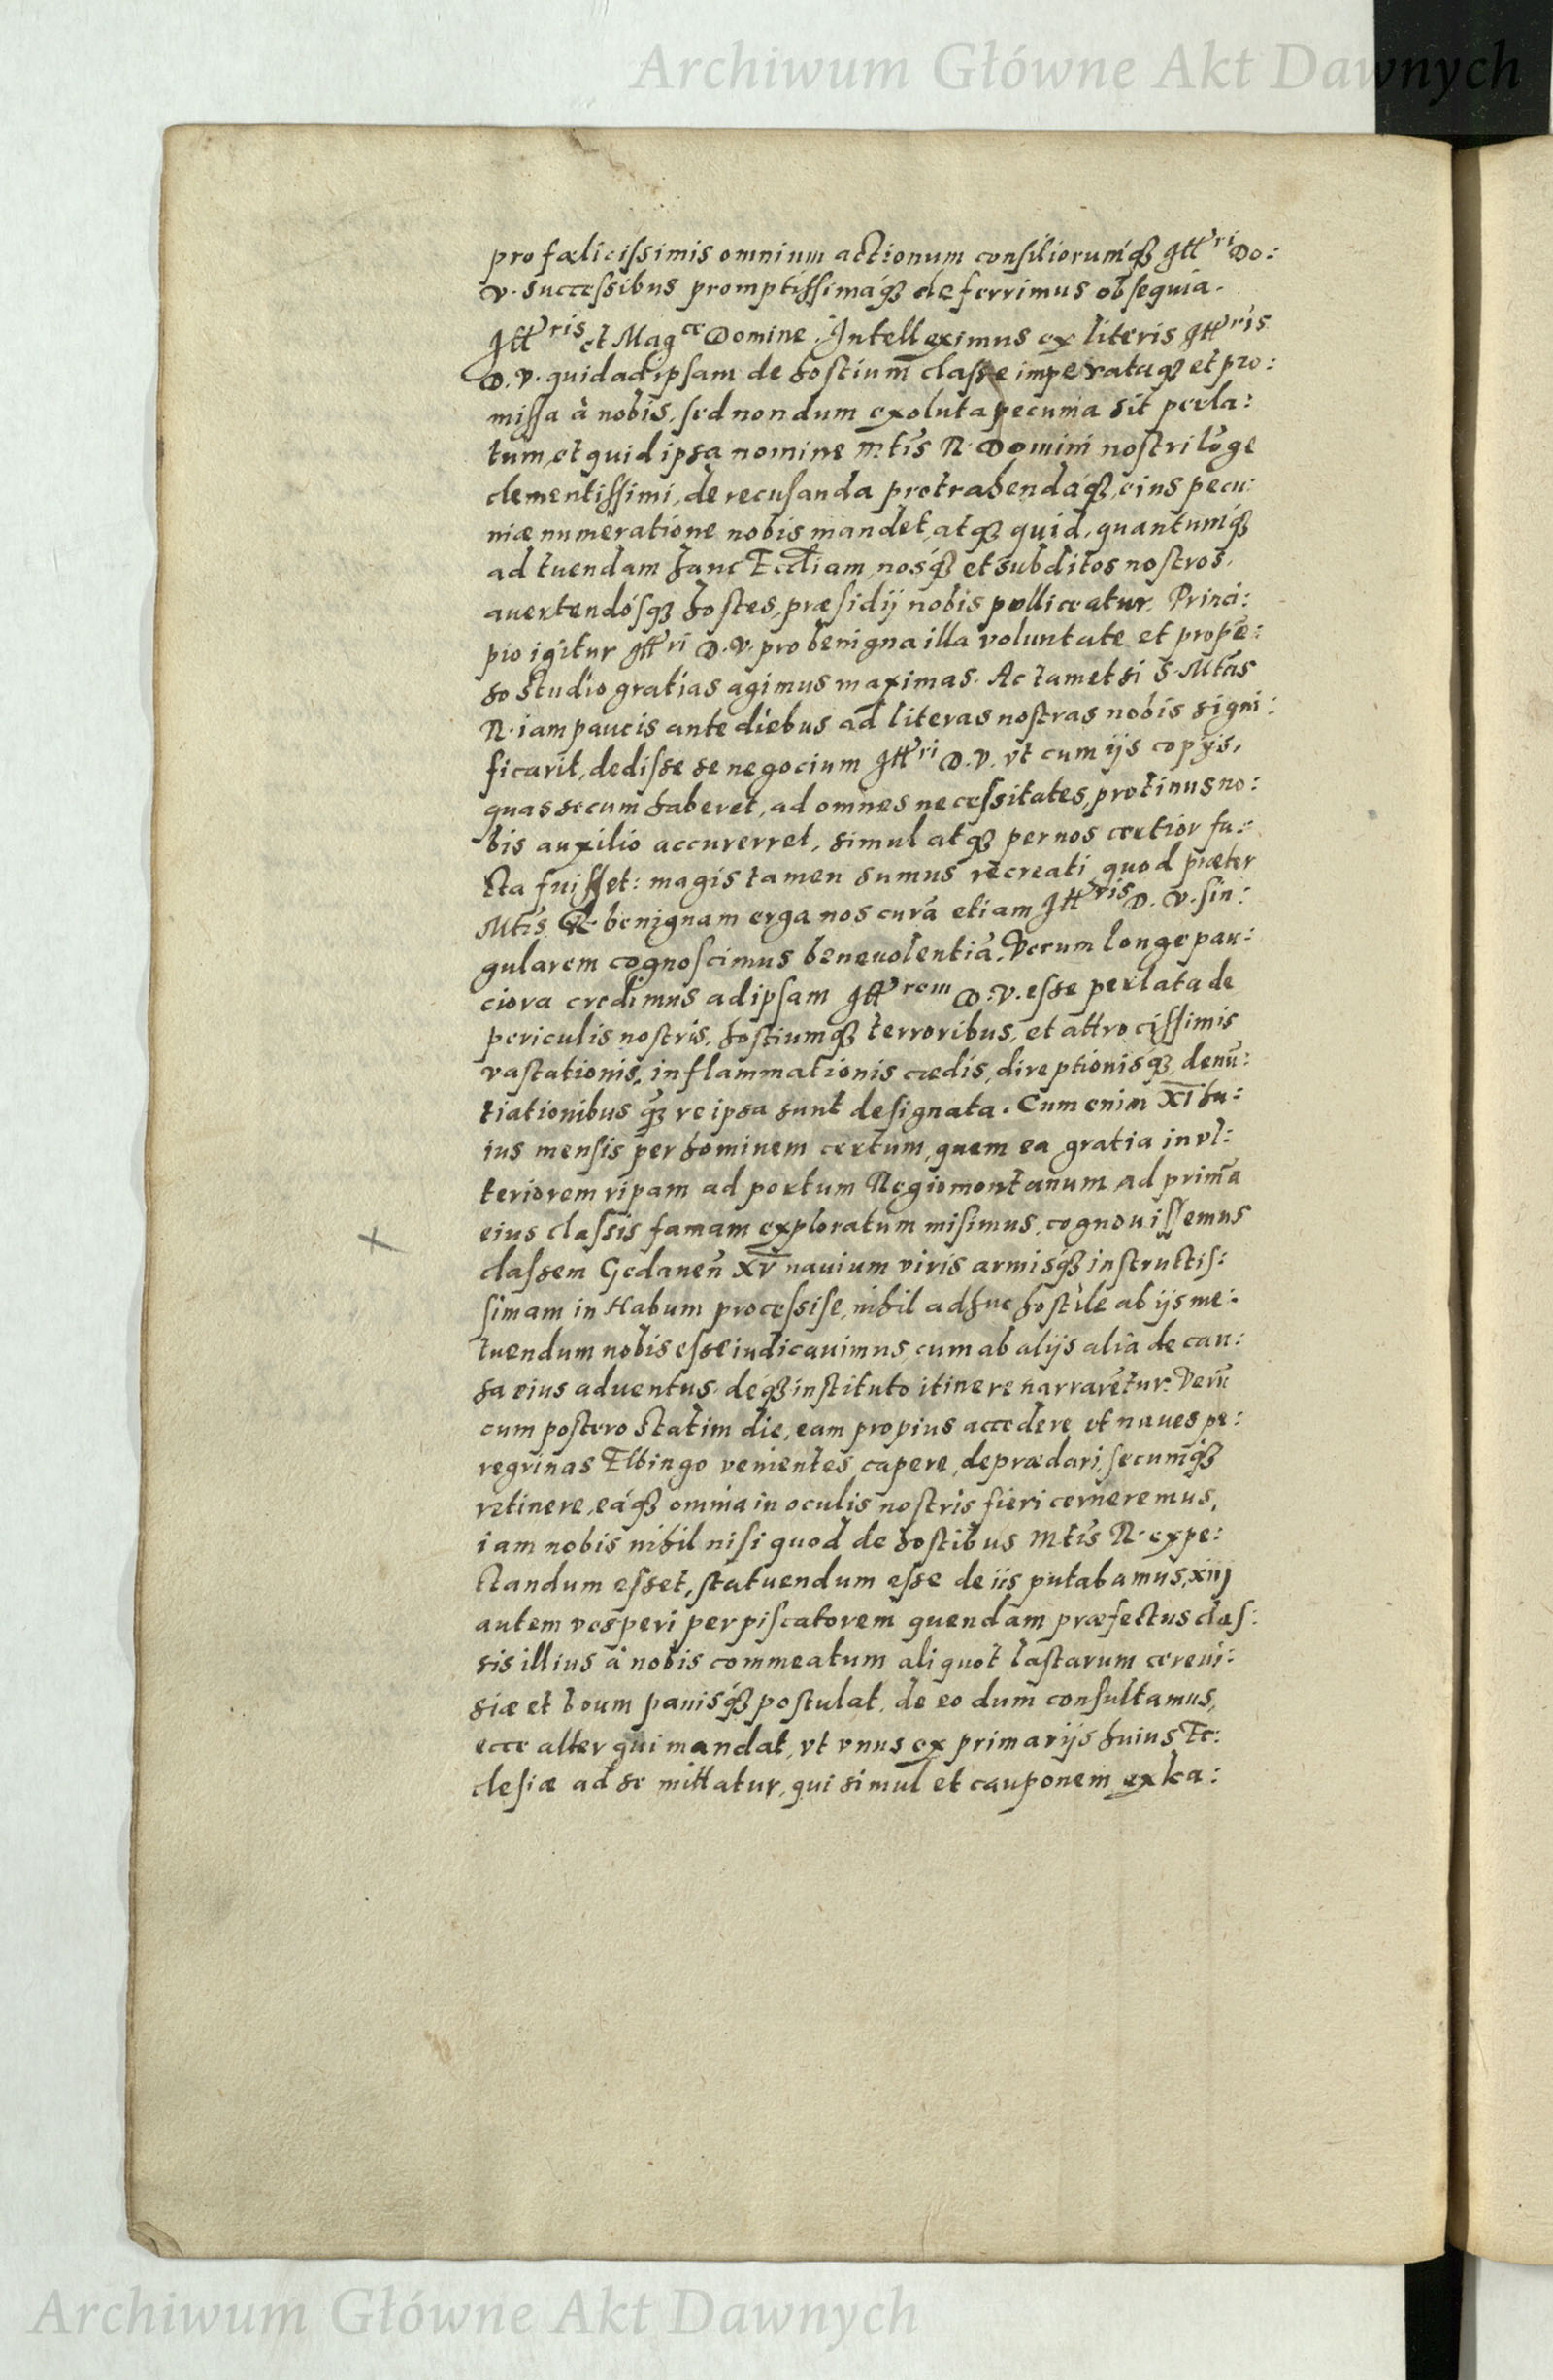 Archiwum Główne Akt Dawnych
pro fælicissimis omnium actionum consiliorumq́₃ Ill^ri Do:
v. successibus promptissimaq́₃ deferrimus obsequia.
Ill^ris et Mag^ce Domine. Intelleximus ex literis Ill^ris
D. v. quid ad ipsam de hostium̄ classe imperataq₃ et pro:
missa à nobis, sed nondum exoluta pecunia sit perla:
tum, et quid ipsa nomine m̄tis R. Domini nostri lōge
clementissimi, de recusanda protrahendaq́₃ eius pecu:
niæ numeratione nobis mandet, atq₃ quid, quantumq́₃
ad tuendam hanc Eccl̄iam, nosq́₃ et subditos nostros,
auertendósq₃ hostes, præsidij nobis polliceatur. Princi:
pio igitur Ill^ri D. v. pro benigna illa voluntate et propē:
so studio gratias agimus maximas. Ac tametsi S. Mtās
R. iam paucis ante diebus ad literas nostras nobis signi:
ficarit, dedisse se negocium Ill^ri D. v. vt cum ijs copijs,
quas secum haberet, ad omnes necessitates, protinus no:
bis auxilio accurerret, simul atq₃ per nos certior fa:
cta fuisset: magis tamen sumus recreati, quod præter
Mtīs R. benignam erga nos curā etiam Ill^ris D. v. sin:
gularem cognoscimus beneuolentiā. Verum longe pau:
ciora credimus ad ipsam Ill^rem D. v. esse perlata de
periculis nostris, hostiumq₃ terroribus, et attrocissimis
vastationis, inflammationis cædis, direptionisq́₃ denū:
tiationibus q̄₃ re ipsa sunt designata. Cum enim XI hu:
ius mensis per hominem certum, quem ea gratia in vl:
teriorem ripam ad portum Regiomontanum ad primā
eius classis famam exploratum misimus, cognouissemus
classem Gedanen̄ XV nauium viris armisq́₃ instructis:
simam in Habum processise, nihil adhuc hostile ab ijs me:
tuendum nobis esse iudicauimus, cum ab alijs alia de cau:
sa eius aduentus, deq́₃ instituto itinere narrarētur. Verū
cum postero statim die, eam propius accedere et naues pe:
regrinas Elbingo venientes capere, deprædari, secumq́₃
retinere, eaq́₃ omnia in oculis nostris fieri cerneremus,
iam nobis nihil nisi quod de hostibus Mtīs R. expe:
ctandum esset, statuendum esse de iis putabamus, xiij
autem vesperi per piscatorem quendam præfectus clas:
sis illius à nobis commeatum aliquot lastarum cereui:
siæ et boum panisq́₃ postulat. de eo dum consultamus,
ecce alter qui mandat, vt vnus ex primarijs huius Ec:
clesiæ ad se mittatur, qui simul et cauponem ex ta:
Archiwum Główne Akt Dawnych